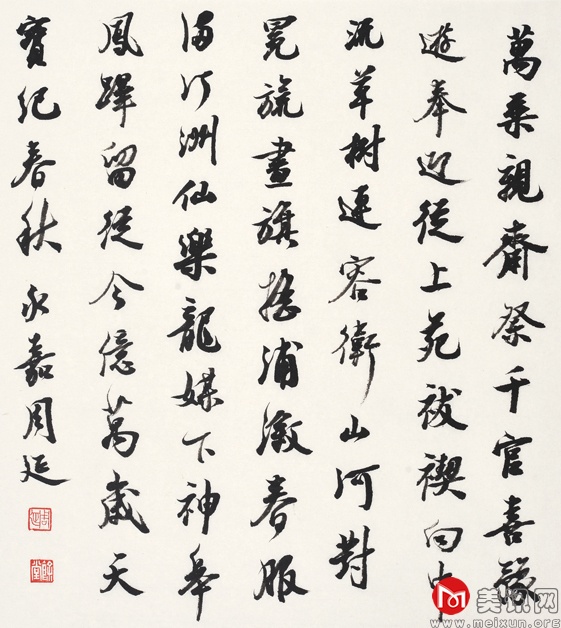 萬乘親齋祭千官喜豫
遊奉迎從上苑祓禊向中
流草樹連容衛山河對
冕旒畫旗搖浦溆春服
滿汀洲仙樂龍媒下神皋
鳳蹕留從今億萬歲天
寶紀春秋 永嘉周延
美讯网
www.meixun.org